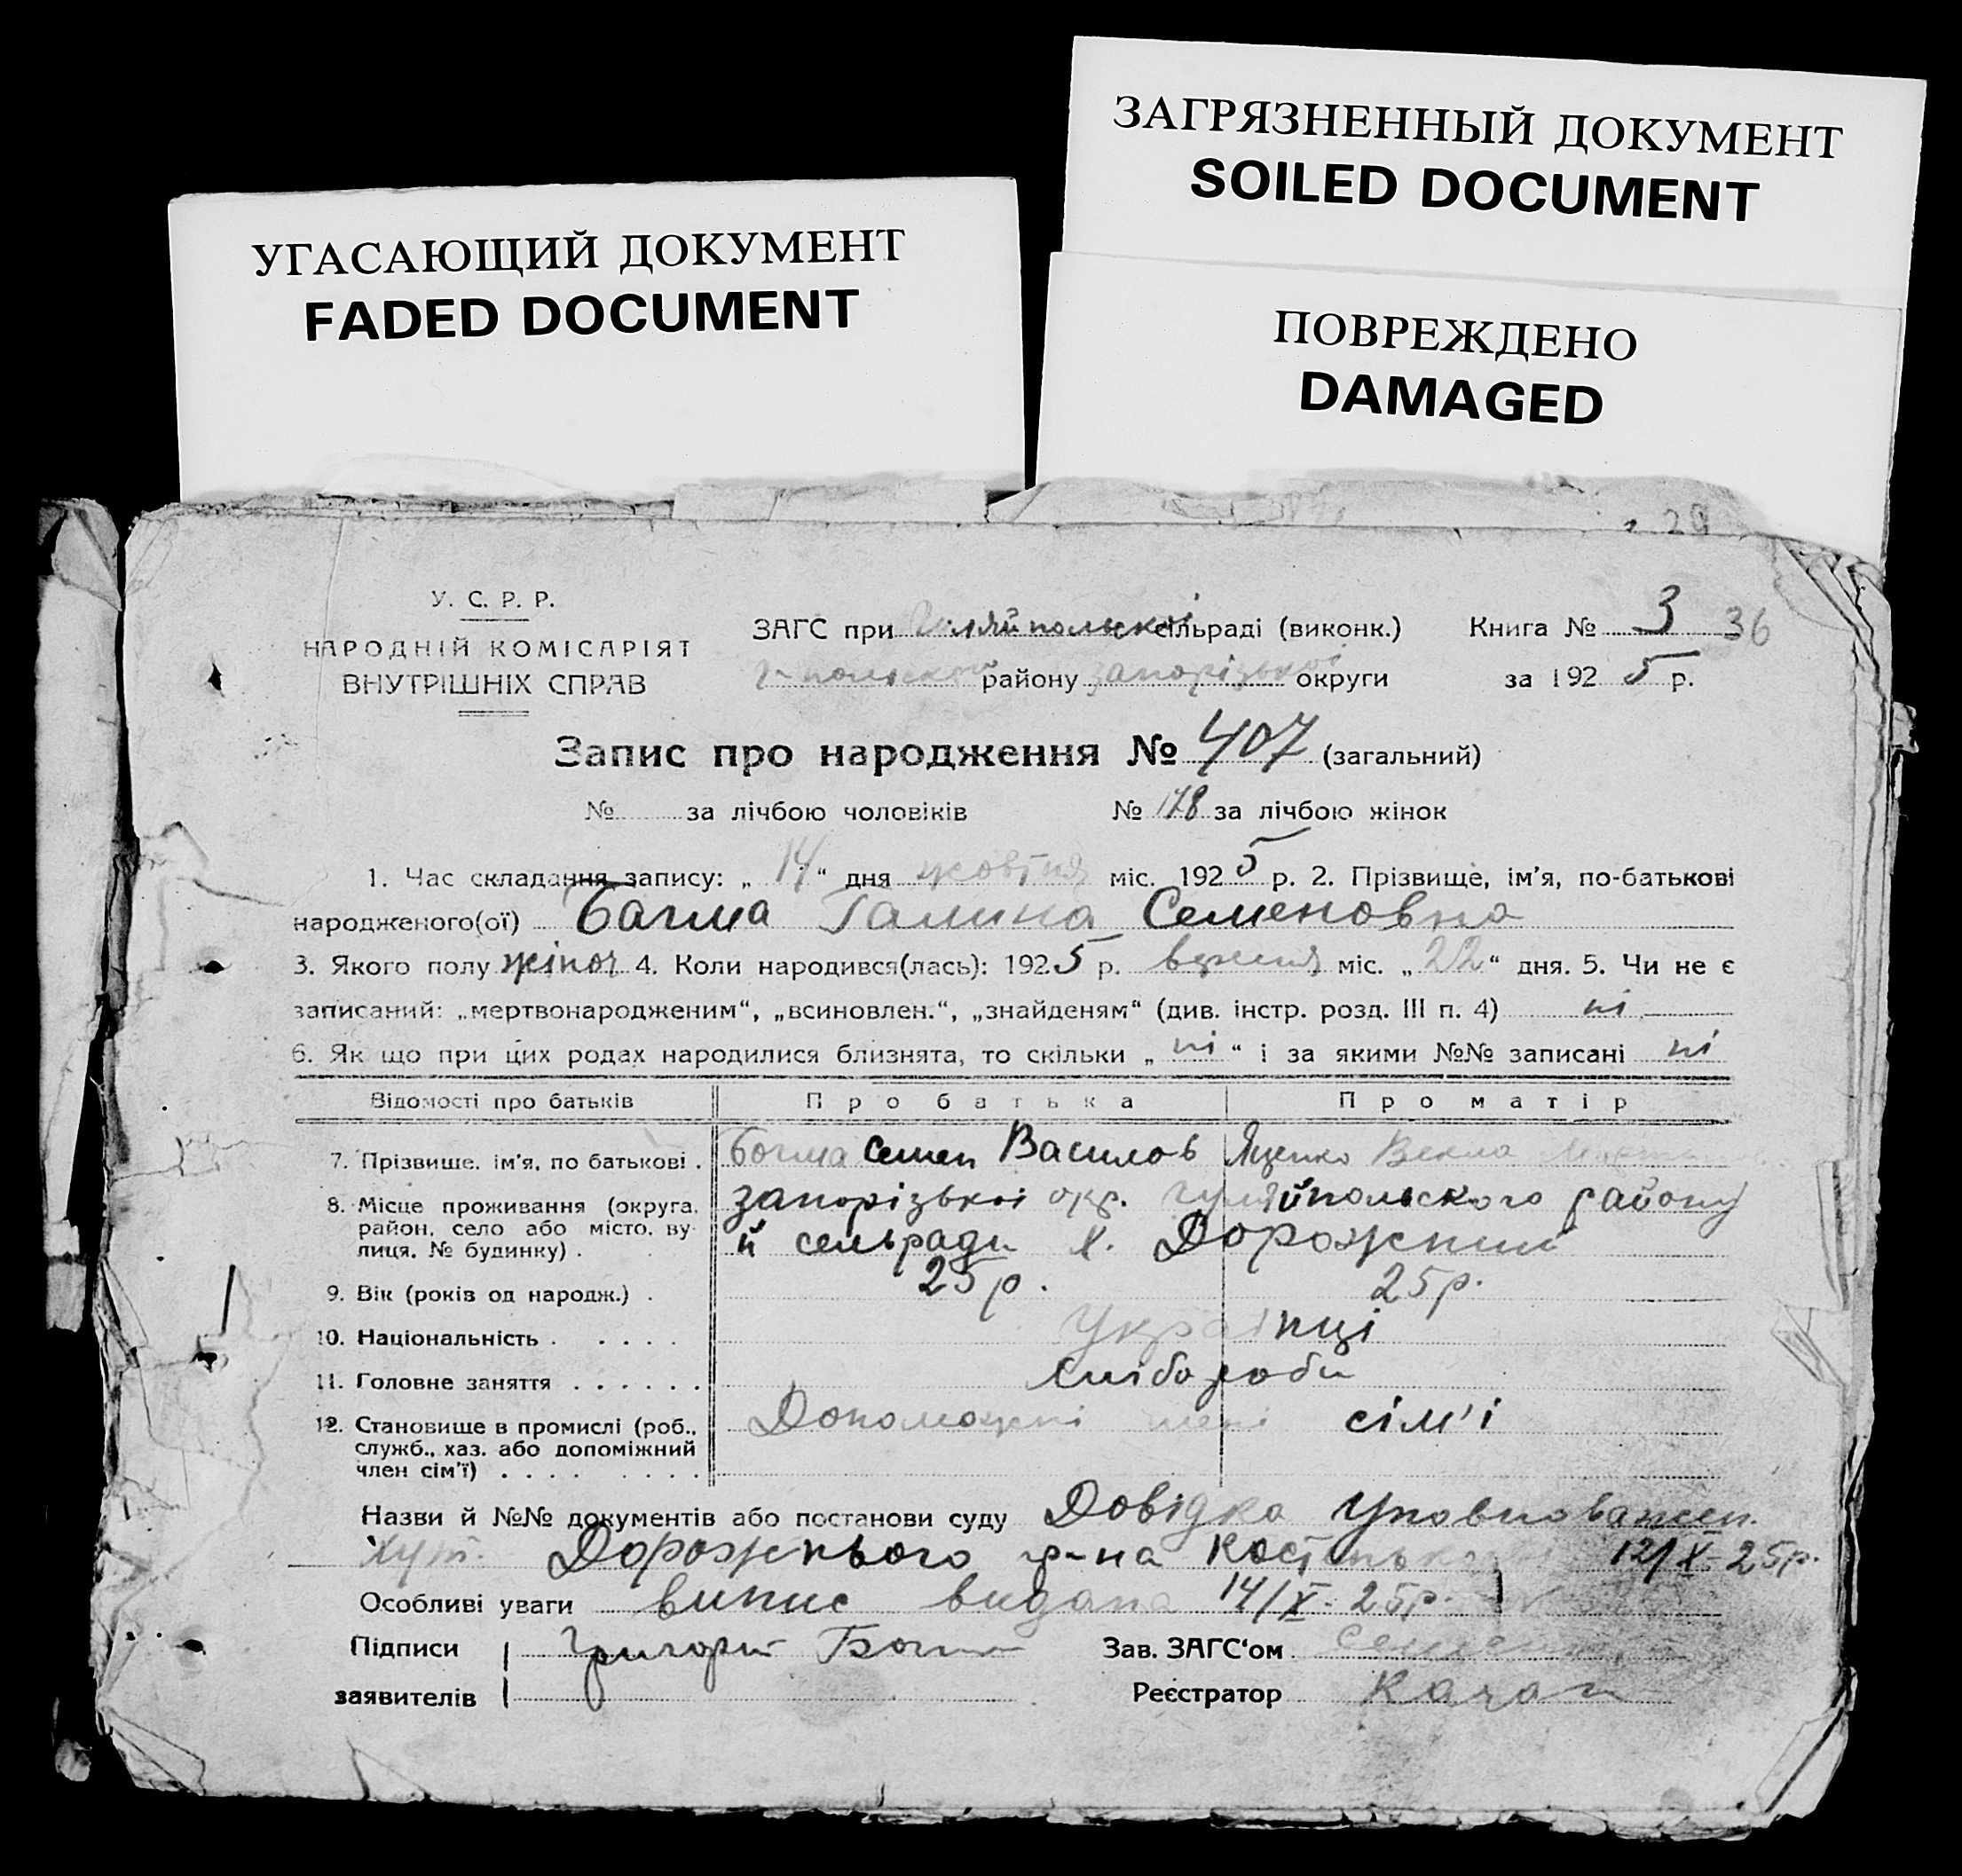 ЗАГРЯЗНЕННЫЙ ДОКУМЕНТ
SOILED DOCUMENT
УГАСАЮЩИЙ ДОКУМЕНТ
FADED DOCUMENT
ПОВРЕЖДЕНО
DAMAGED
29
У. С. Р. Р.
НАРОДНІЙ КОМІСАРІЯТ
ВНУТРІШНІХ СПРАВ
ЗАГС при Гуляйпольскої сільраді (виконк.)
польского району запорізької округи
Книга № 3 36
за 1925 р.
Запис про народження № 407 (загальний)
№ за лічбою чоловіків № 178 за лічбою жінок
1. Час складання запису: „14“ дня жовтня міс. 1925 р. 2. Прізвище, ім'я, по-батькові
народженого(ої) Багма Галина Семеновна
3. Якого полу жіноч 4. Коли народився(лась): 1925 р. вересня міс. „22“ дня. 5. Чи не є
записаний: „мертвонародженим“, „всиновлен.“, „знайденям“ (див. інстр. розд. III п. 4) ні
6. Як що при цих родах народилися близнята, то скільки „ні“ і за якими №№ записані ні
Відомості про батьків Про батька Про матір
7. Прізвище, ім'я, по батькові . Богма Семен Василов Яценко Векла
8. Місце проживання (округа, район, село або місто, вулиця, № будинку) . запорізької окр. гуляйпольского району
й сельради х. Дорожний
9. Вік (років од народж.) . 25 р. 25 р.
10. Національність . . . . . Українці
11. Головне заняття . . . . . . хлібороби
12. Становище в промислі (роб., Допоможні члені сім'ї
служб., хаз. або допоміжний
член сім'ї) . . . . . . . .
Назви й №№ документів або постанови суду Довідка Уповноважен.
Хут. Дорожнього гр-на 12/X-25р.
Особливі уваги випис видана 14/X-25р.
Підписи Григорій Богма Зав. ЗАГС'ом
заявителів Реєстратор